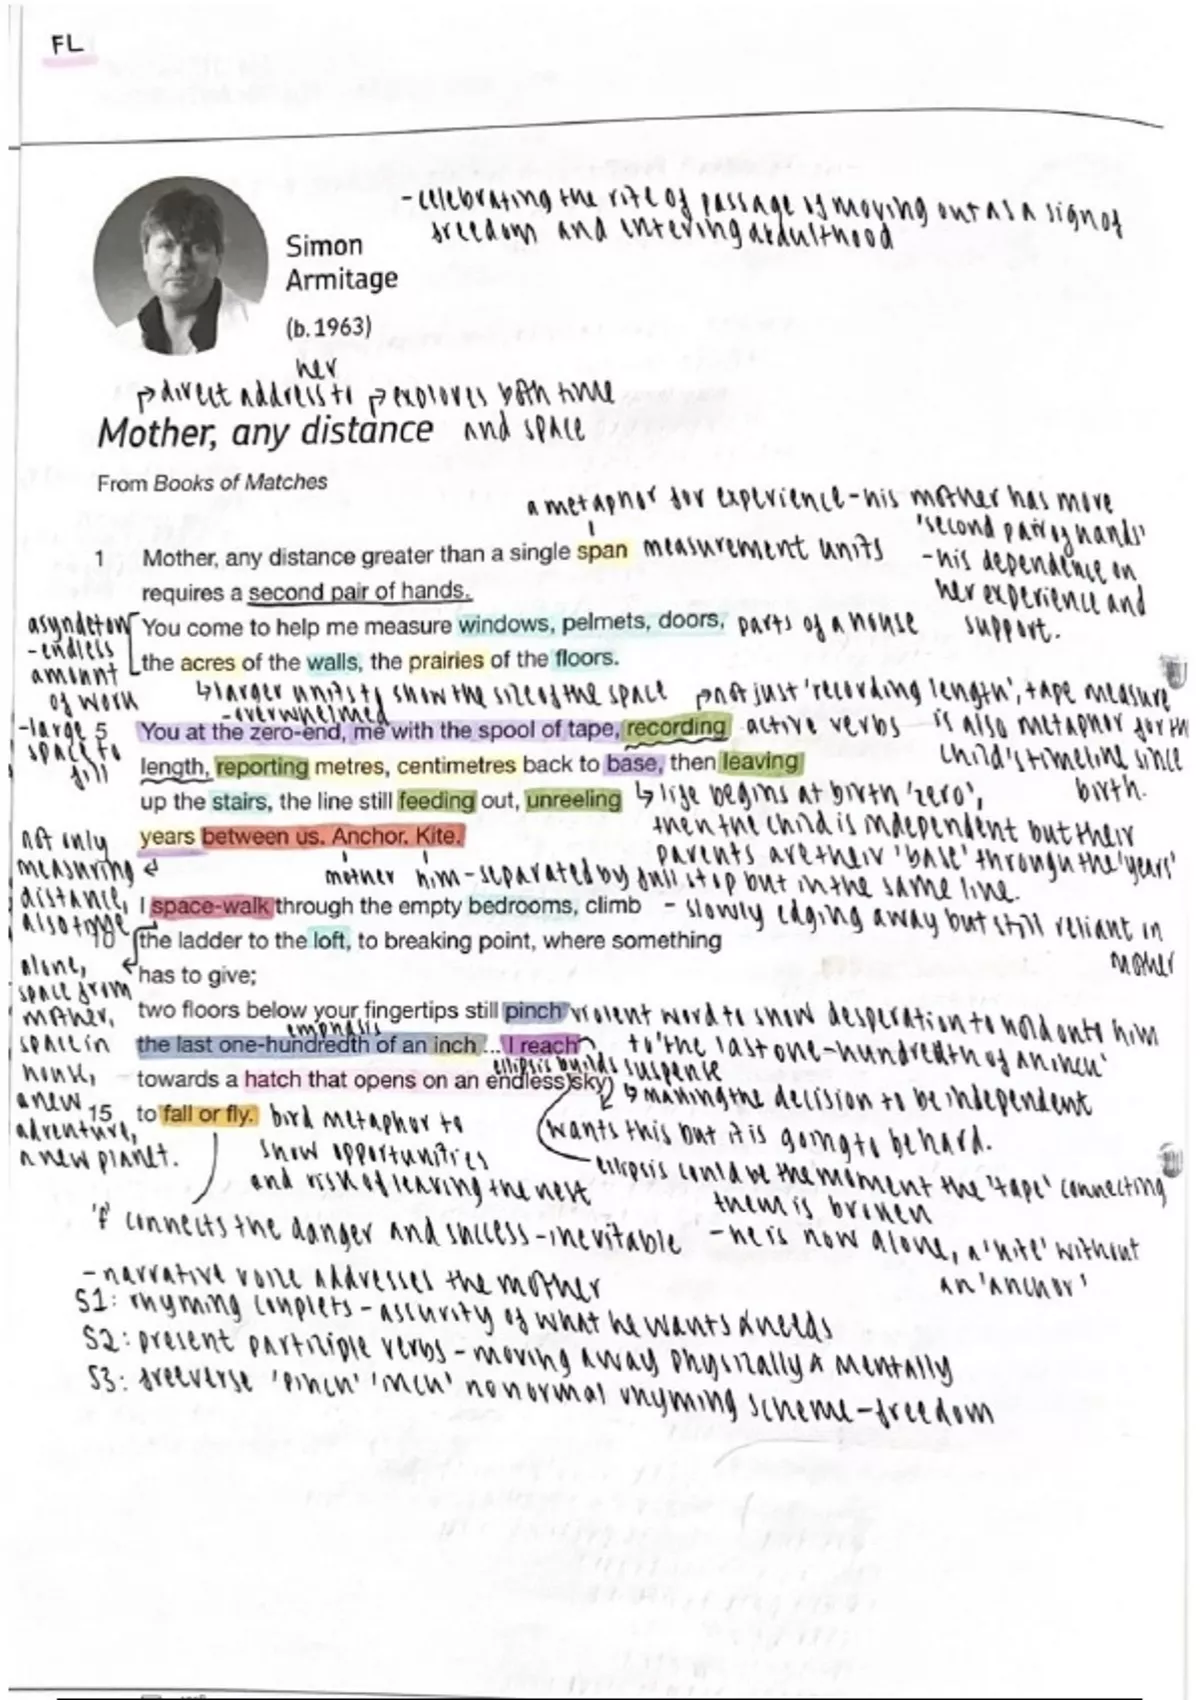 FL
-celebrating the rite of passage of moving out as a sign of
freedom and entering adulthood
Simon
Armitage
(b. 1963)
her
↱direct address to ↱explores both time
Mother, any distance and space
From Books of Matches
a metaphor for experience-his mother has more
'second pair of hands'
1 Mother, any distance greater than a single span measurement units
-his dependence on
requires a second pair of hands.
her experience and
support.
asyndeton
-endless
amount
of work
You come to help me measure windows, pelmets, doors, parts of a house
the acres of the walls, the prairies of the floors.
↳larger units to show the size of the space
-overwhelmed
↱not just 'recording length', tape measure
is also metaphor for th
child's timeline since
birth.
-large
space to
fill
5 You at the zero-end, me with the spool of tape, recording active verbs
length, reporting metres, centimetres back to base, then leaving
up the stairs, the line still feeding out, unreeling
↳ life begins at birth 'zero',
then the child is independent but their
parents are their 'base' through the 'years'
years between us. Anchor. Kite.
not only
measuring
distance,
also time
mother him-separated by full stop but in the same line.
I space-walk through the empty bedrooms, climb - slowly edging away but still reliant in
mother
10 the ladder to the loft, to breaking point, where something
has to give;
alone,
space from
mother,
space in
house,
a new
adventure,
a new planet.
two floors below your fingertips still pinch violent word to show desperation to hold onto him
to 'the last one-hundredth of an inch'
emphasis
the last one-hundredth of an inch...I reach
ellipsis builds suspense
towards a hatch that opens on an endless sky
↳making the decision to be independent
wants this but it is going to be hard.
15 to fall or fly. bird metaphor to
show opportunities
and risk of leaving the nest
ellipsis could be the moment the 'tape' connecting
them is broken
'f' connects the danger and success-inevitable
-he is now alone, a 'kite' without
an 'anchor'
-narrative voice addresses the mother
S1: rhyming couplets-assurity of what he wants & needs
S2: present participle verbs-moving away physically & mentally
S3: freeverse 'pinch' 'inch' no normal rhyming scheme-freedom